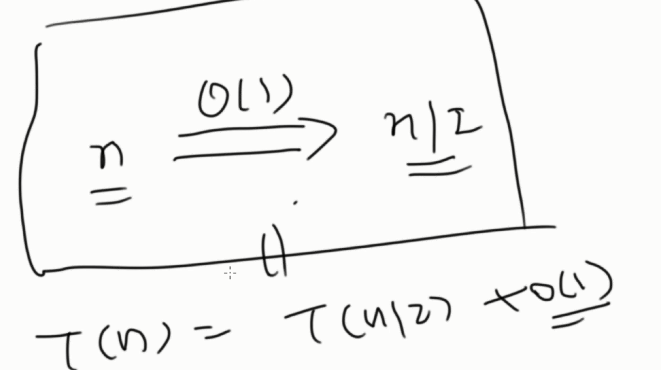 O(1)
n ⇒ n/2
()
T(n) = T(n/2) + O(1)